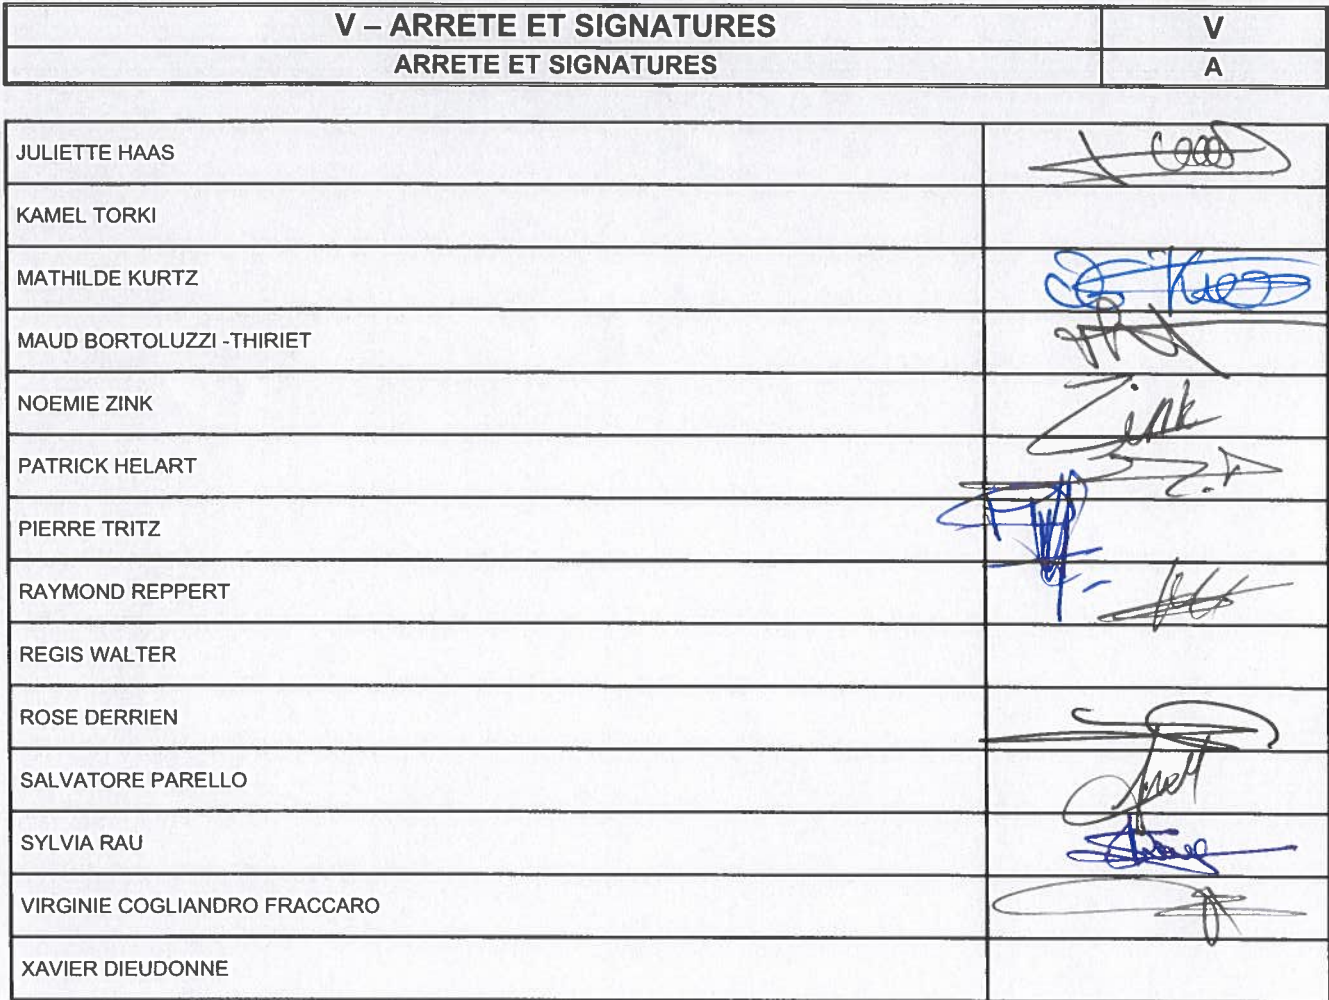 V – ARRETE ET SIGNATURES V
ARRETE ET SIGNATURES A
JULIETTE HAAS
KAMEL TORKI
MATHILDE KURTZ
MAUD BORTOLUZZI -THIRIET
NOEMIE ZINK Zink
PATRICK HELART
PIERRE TRITZ
RAYMOND REPPERT
REGIS WALTER
ROSE DERRIEN
SALVATORE PARELLO
SYLVIA RAU
VIRGINIE COGLIANDRO FRACCARO
XAVIER DIEUDONNE